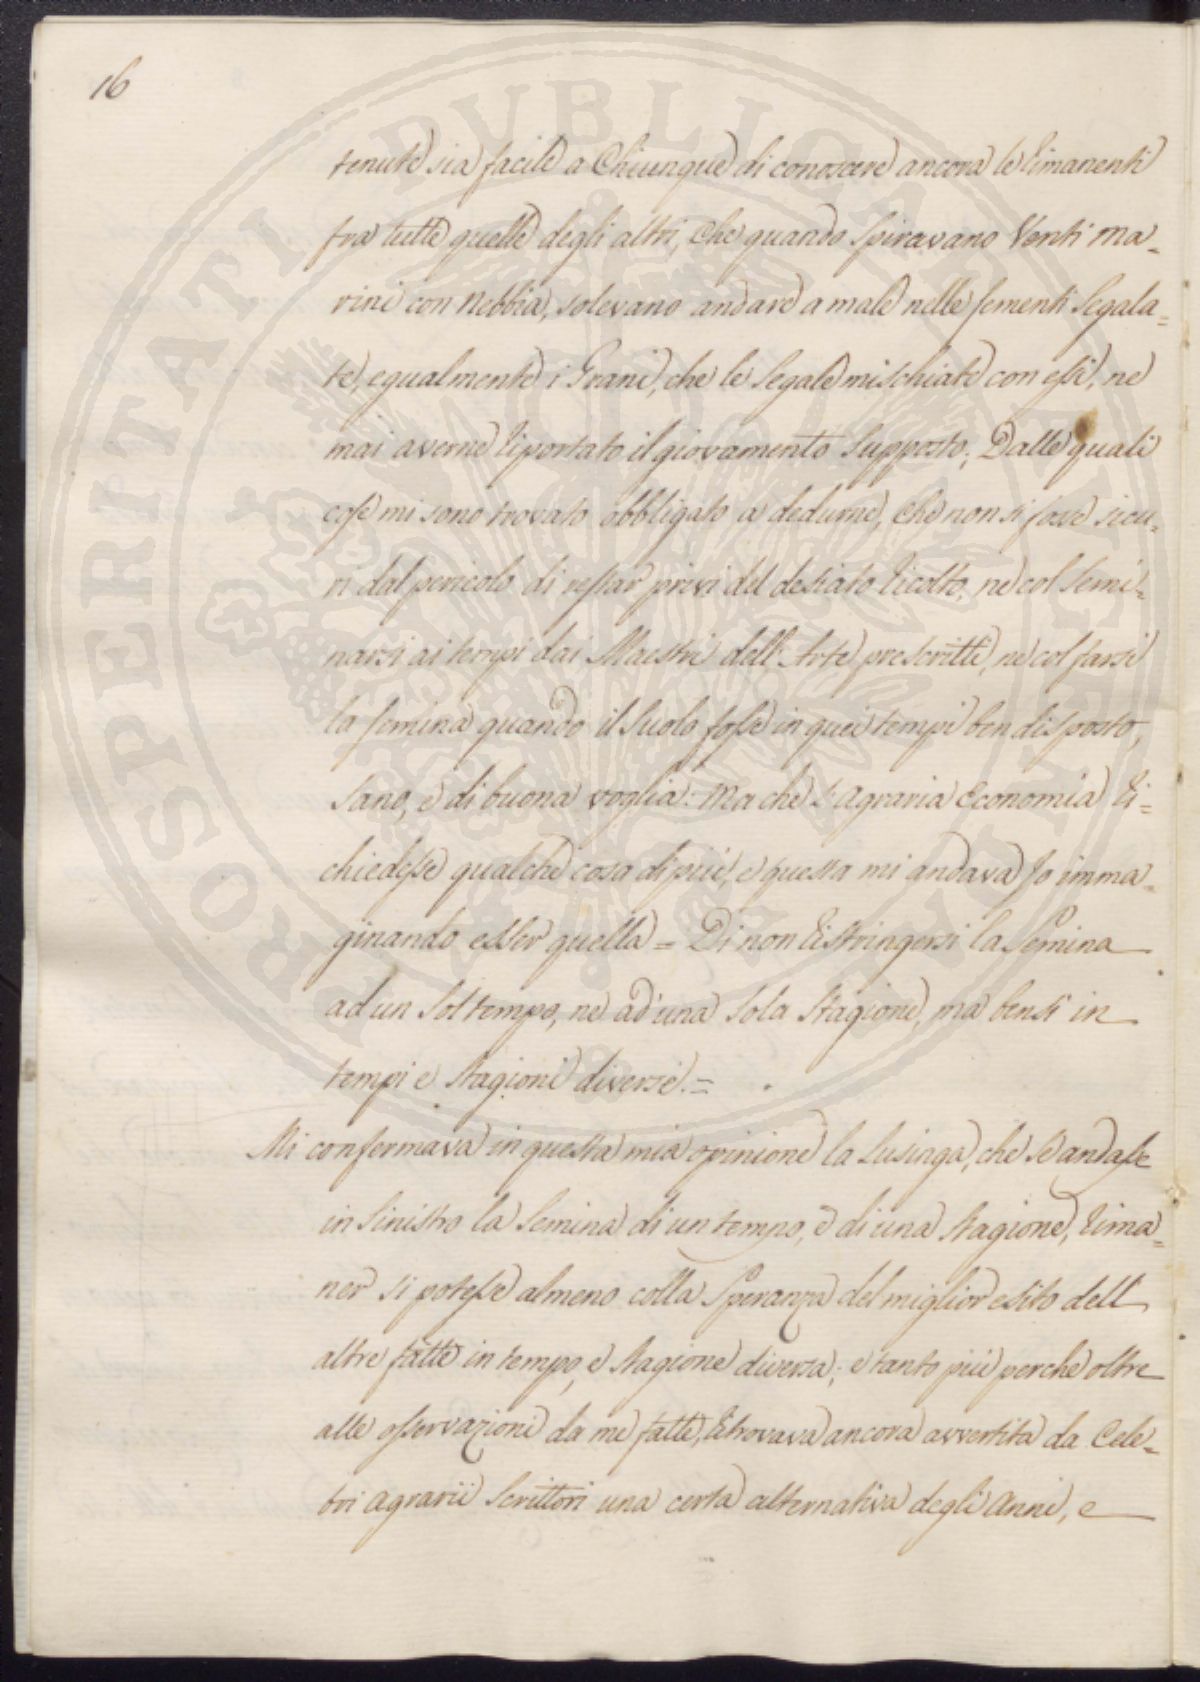 16
tenute sia facile a Chiunque di conoscere ancora le rimanenti
fra tutte quelle degli altri, che quando Spiravano Venti Ma-
rini con Nebbia, solevano andare a male nelle sementi Segala=
te, egualmente i Grani, che le Segale mischiate con essi, ne
mai averne riportato il giovamento Supposto; Dalle quali
cose mi sono trovato obbligato a dedurne, che non si fosse sicu-
ri dal pericolo di restar privi del desiato ricolto, ne col Semi=
narsi ai tempi dai Maestri dell'Arte prescritti, ne col farsi
la semina quando il Suolo fosse in quei tempi ben disposto,
Sano, e di buona voglia: Ma che l'Agraria Economia ri=
chiedesse qualche cosa di più, e questa mi andava Io imma-
ginando esser quella = Di non ristringersi la Semina
ad un Sol tempo, ne ad una Sola Stagione, ma bensi in
tempi e Stagioni diverse. =
Mi confermava in questa mia opinione la Lusinga, che se andasse
in Sinistro la Semina di un tempo, e di una Stagione, rima=
ner si potesse almeno colla Speranza del miglior esito dell
altre fatte in tempo, e Stagione diversa; e tanto più perche oltre
alle osservazioni da me fatte, ritrovava ancora avvertita da Cele-
bri Agrarii Scrittori una certa alternativa degli Anni, e
PROSPERITATI PUBLICAE AUGENDAE